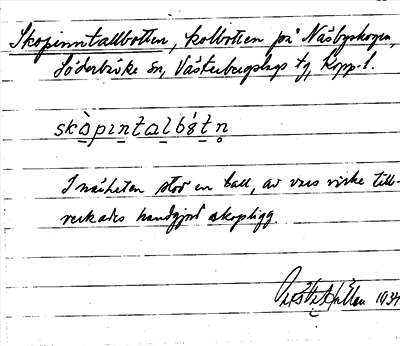 Skopinntallbotten, kolbotten på Näsbyskogen,
Söderbärke sn, Västerbergslags tg, Kopp. l.
skòpıntalbót̥n̥
I närheten stod en tall, av vars virke till-
verkades handgjord skopligg
1934